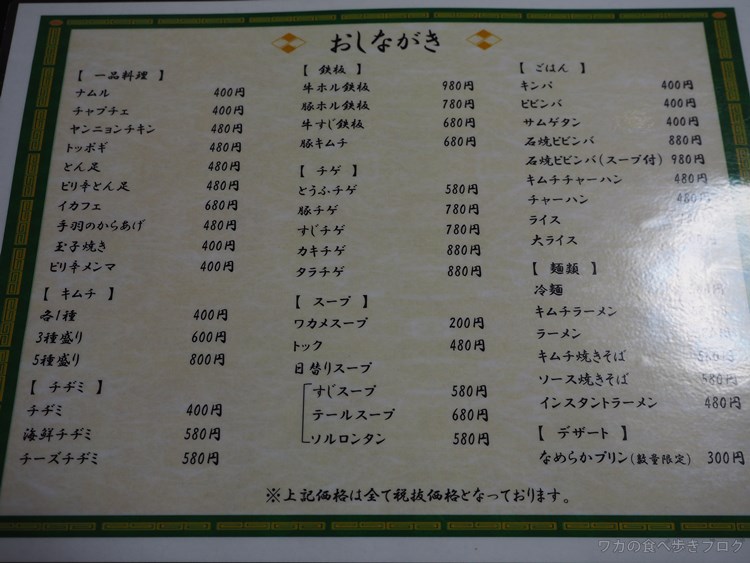 おしながき
【 一品料理 】
ナムル 400円
チャプチェ 400円
ヤンニョンチキン 480円
トッポギ 480円
とん足 480円
ピリ辛とん足 480円
イカフェ 680円
手羽のからあげ 480円
玉子焼き 400円
ピリ辛メンマ 400円
【 キムチ 】
各1種 400円
3種盛り 600円
5種盛り 800円
【 チヂミ 】
チヂミ 400円
海鮮チヂミ 580円
チーズチヂミ 580円
【 鉄板 】
牛ホル鉄板 980円
豚ホル鉄板 780円
牛すじ鉄板 680円
豚キムチ 680円
【 チゲ 】
とうふチゲ 580円
豚チゲ 780円
すじチゲ 780円
カキチゲ 880円
タラチゲ 880円
【 スープ 】
ワカメスープ 200円
トック 480円
日替りスープ
すじスープ 580円
テールスープ 680円
ソルロンタン 580円
【 ごはん 】
キンパ 400円
ビビンバ 400円
サムゲタン 400円
石焼ビビンバ 880円
石焼ビビンバ(スープ付) 980円
キムチチャーハン 480円
チャーハン 480円
ライス
大ライス
【 麺類 】
冷麺
キムチラーメン
ラーメン
キムチ焼きそば 580円
ソース焼きそば 580円
インスタントラーメン 480円
【 デザート 】
なめらかプリン(数量限定) 300円
※上記価格は全て税抜価格となっております。
ワカの食べ歩きブログ